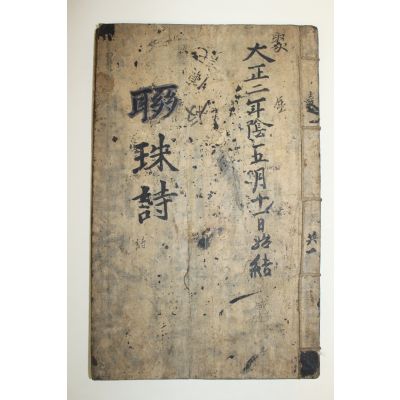 大正二年陰五月十一日始結
聯珠詩
共一